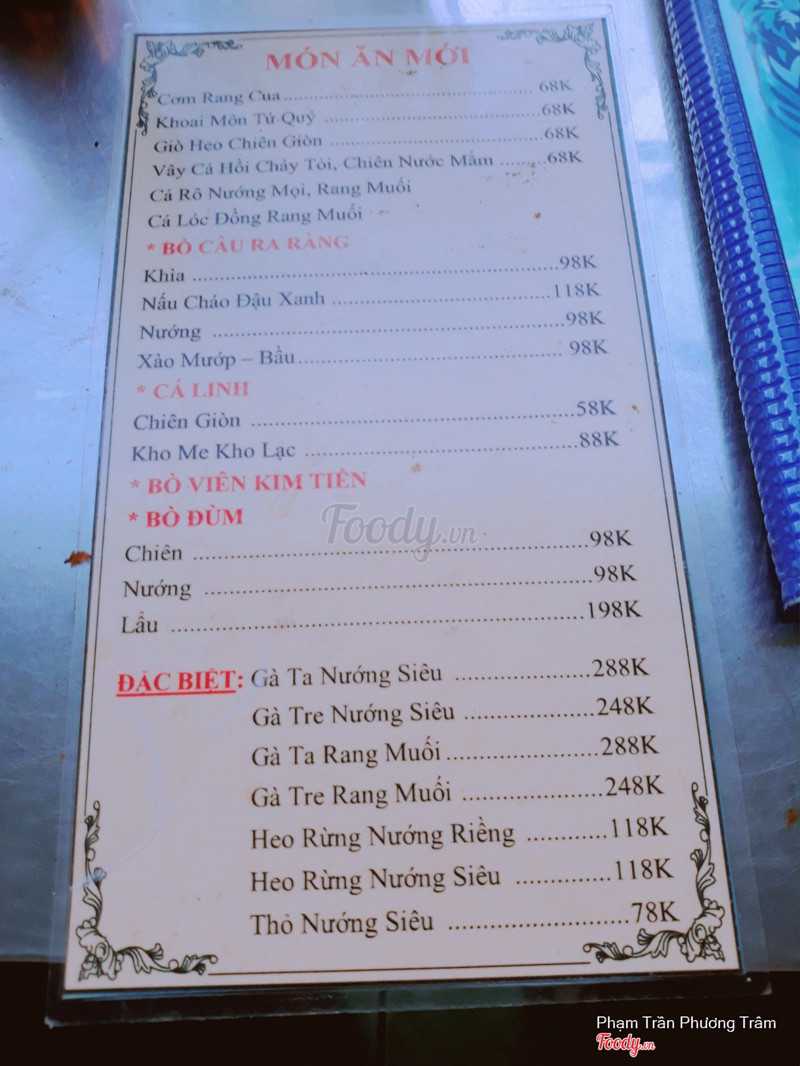 MÓN ĂN MỚI
Cơm Rang Cua........................................ 68K
Khoai Môn Tứ Quý ....................................68K
Giò Heo Chiên Giòn ...................................68K
Vây Cá Hồi Cháy Tỏi, Chiên Nước Mắm ........68K
Cá Rô Nướng Mọi, Rang Muối
Cá Lóc Đồng Rang Muối
* BỒ CÂU RA RÀNG
Khìa ......................................................98K
Nấu Cháo Đậu Xanh .................................118K
Nướng ....................................................98K
Xào Mướp – Bầu....................................... 98K
* CÁ LINH
Chiên Giòn ..............................................58K
Kho Me Kho Lạc .......................................88K
* BÒ VIÊN KIM TIỀN
* BÒ ĐÙM
Chiên .....................................................98K
Nướng ....................................................98K
Lẩu .......................................................198K
ĐẶC BIỆT: Gà Ta Nướng Siêu ...................288K
Gà Tre Nướng Siêu ..................248K
Gà Ta Rang Muối.....................288K
Gà Tre Rang Muối ...................248K
Heo Rừng Nướng Riềng ...........118K
Heo Rừng Nướng Siêu .............118K
Thỏ Nướng Siêu ........................78K
Foody.vn
Phạm Trần Phương Trâm
Foody.vn